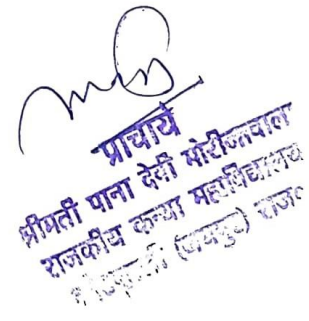 प्राचार्य
श्रीमती पाना देवी मोरीजावाला
राजकीय कन्या महाविद्यालय
(जयपुर) राज०